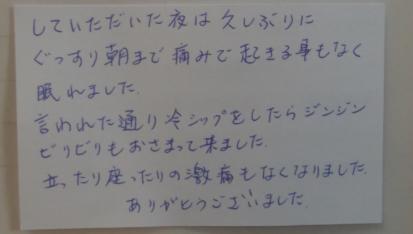 していただいた夜は久しぶりに
ぐっすり朝まで痛みで起きる事もなく
眠れました。
言われた通り冷シップをしたらジンジン
ビリビリもおさまって来ました。
立ったり座ったりの激痛もなくなりました。
ありがとうございました。